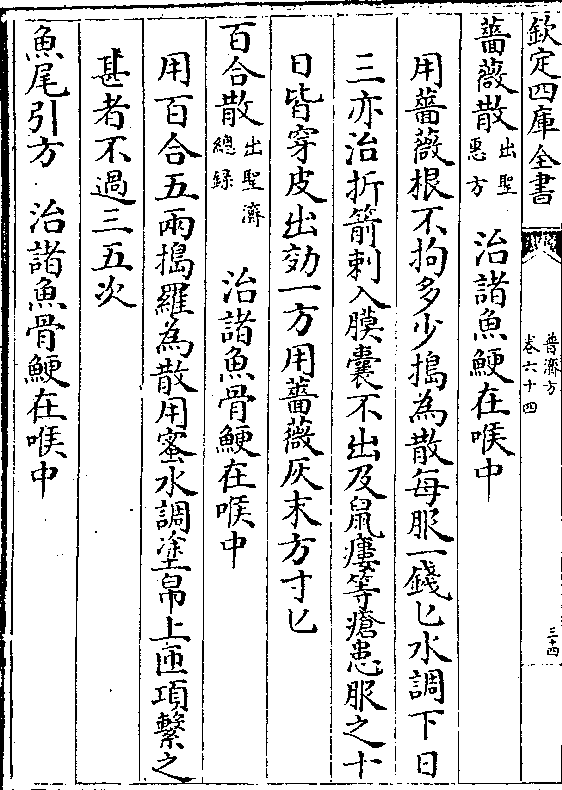 欽定四庫全書
普濟方
卷六十四
三十四
薔薇散出聖惠方 治諸魚鯁在喉中
用薔薇根不拘多少搗為散每服一錢匕水調下日
三亦治折箭刺入膜囊不出及鼠瘻等瘡患服之十
日皆穿皮出効一方用薔薇灰末方寸匕
百合散出聖濟總錄 治諸魚骨鯁在喉中
用百合五兩搗羅為散用蜜水調塗帛上匝項繫之
甚者不過三五次
魚尾引方 治諸魚骨鯁在喉中